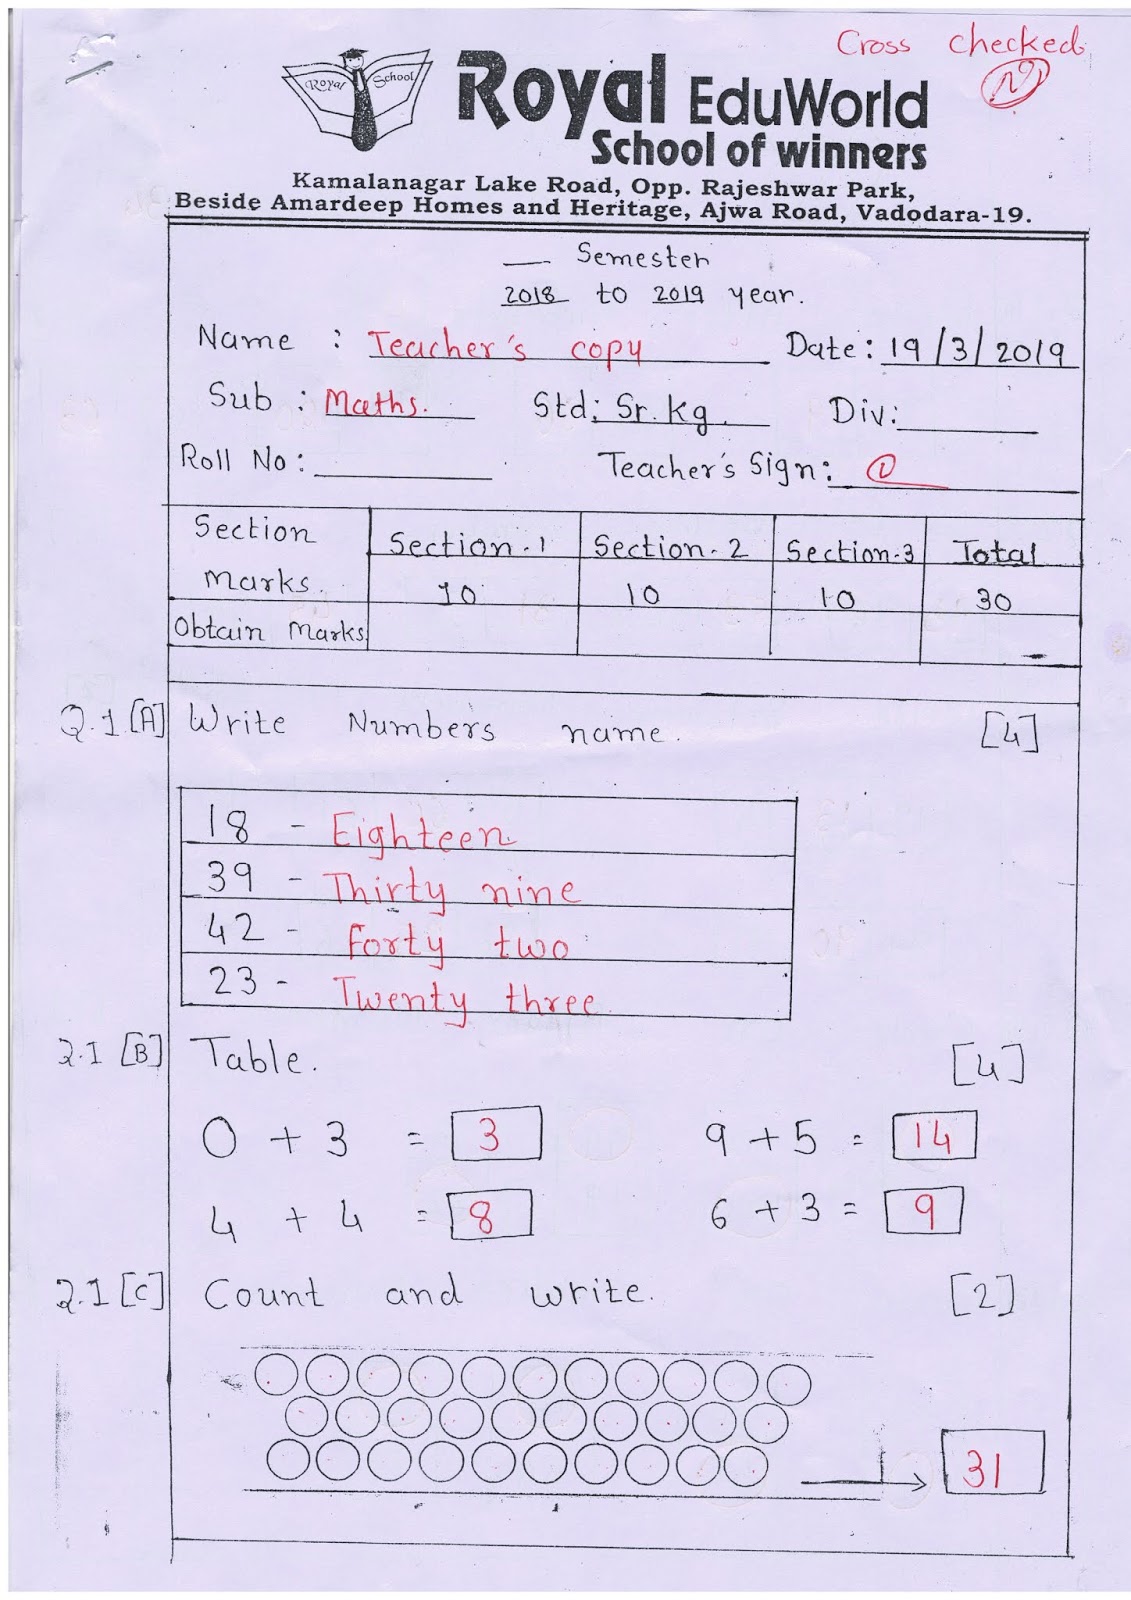 Cross checked
Royal School
Royal EduWorld
School of winners
Kamalanagar Lake Road, Opp. Rajeshwar Park,
Beside Amardeep Homes and Heritage, Ajwa Road, Vadodara-19.
Semester
2018 to 2019 year.
Name : Teacher's copy Date: 19/3/2019
Sub : Maths. Std: Sr. Kg. Div:
Roll No: Teacher's Sign:
Section Marks. Section-1 Section-2 Section-3 Total
10 10 10 30
Obtain Marks
Q.1 [A] Write Numbers name. [4]
18 - Eighteen
39 - Thirty nine
42 - Forty two
23 - Twenty three
Q.1 [B] Table. [4]
0 + 3 = 3 9 + 5 = 14
4 + 4 = 8 6 + 3 = 9
Q.1 [C] Count and write. [2]
31